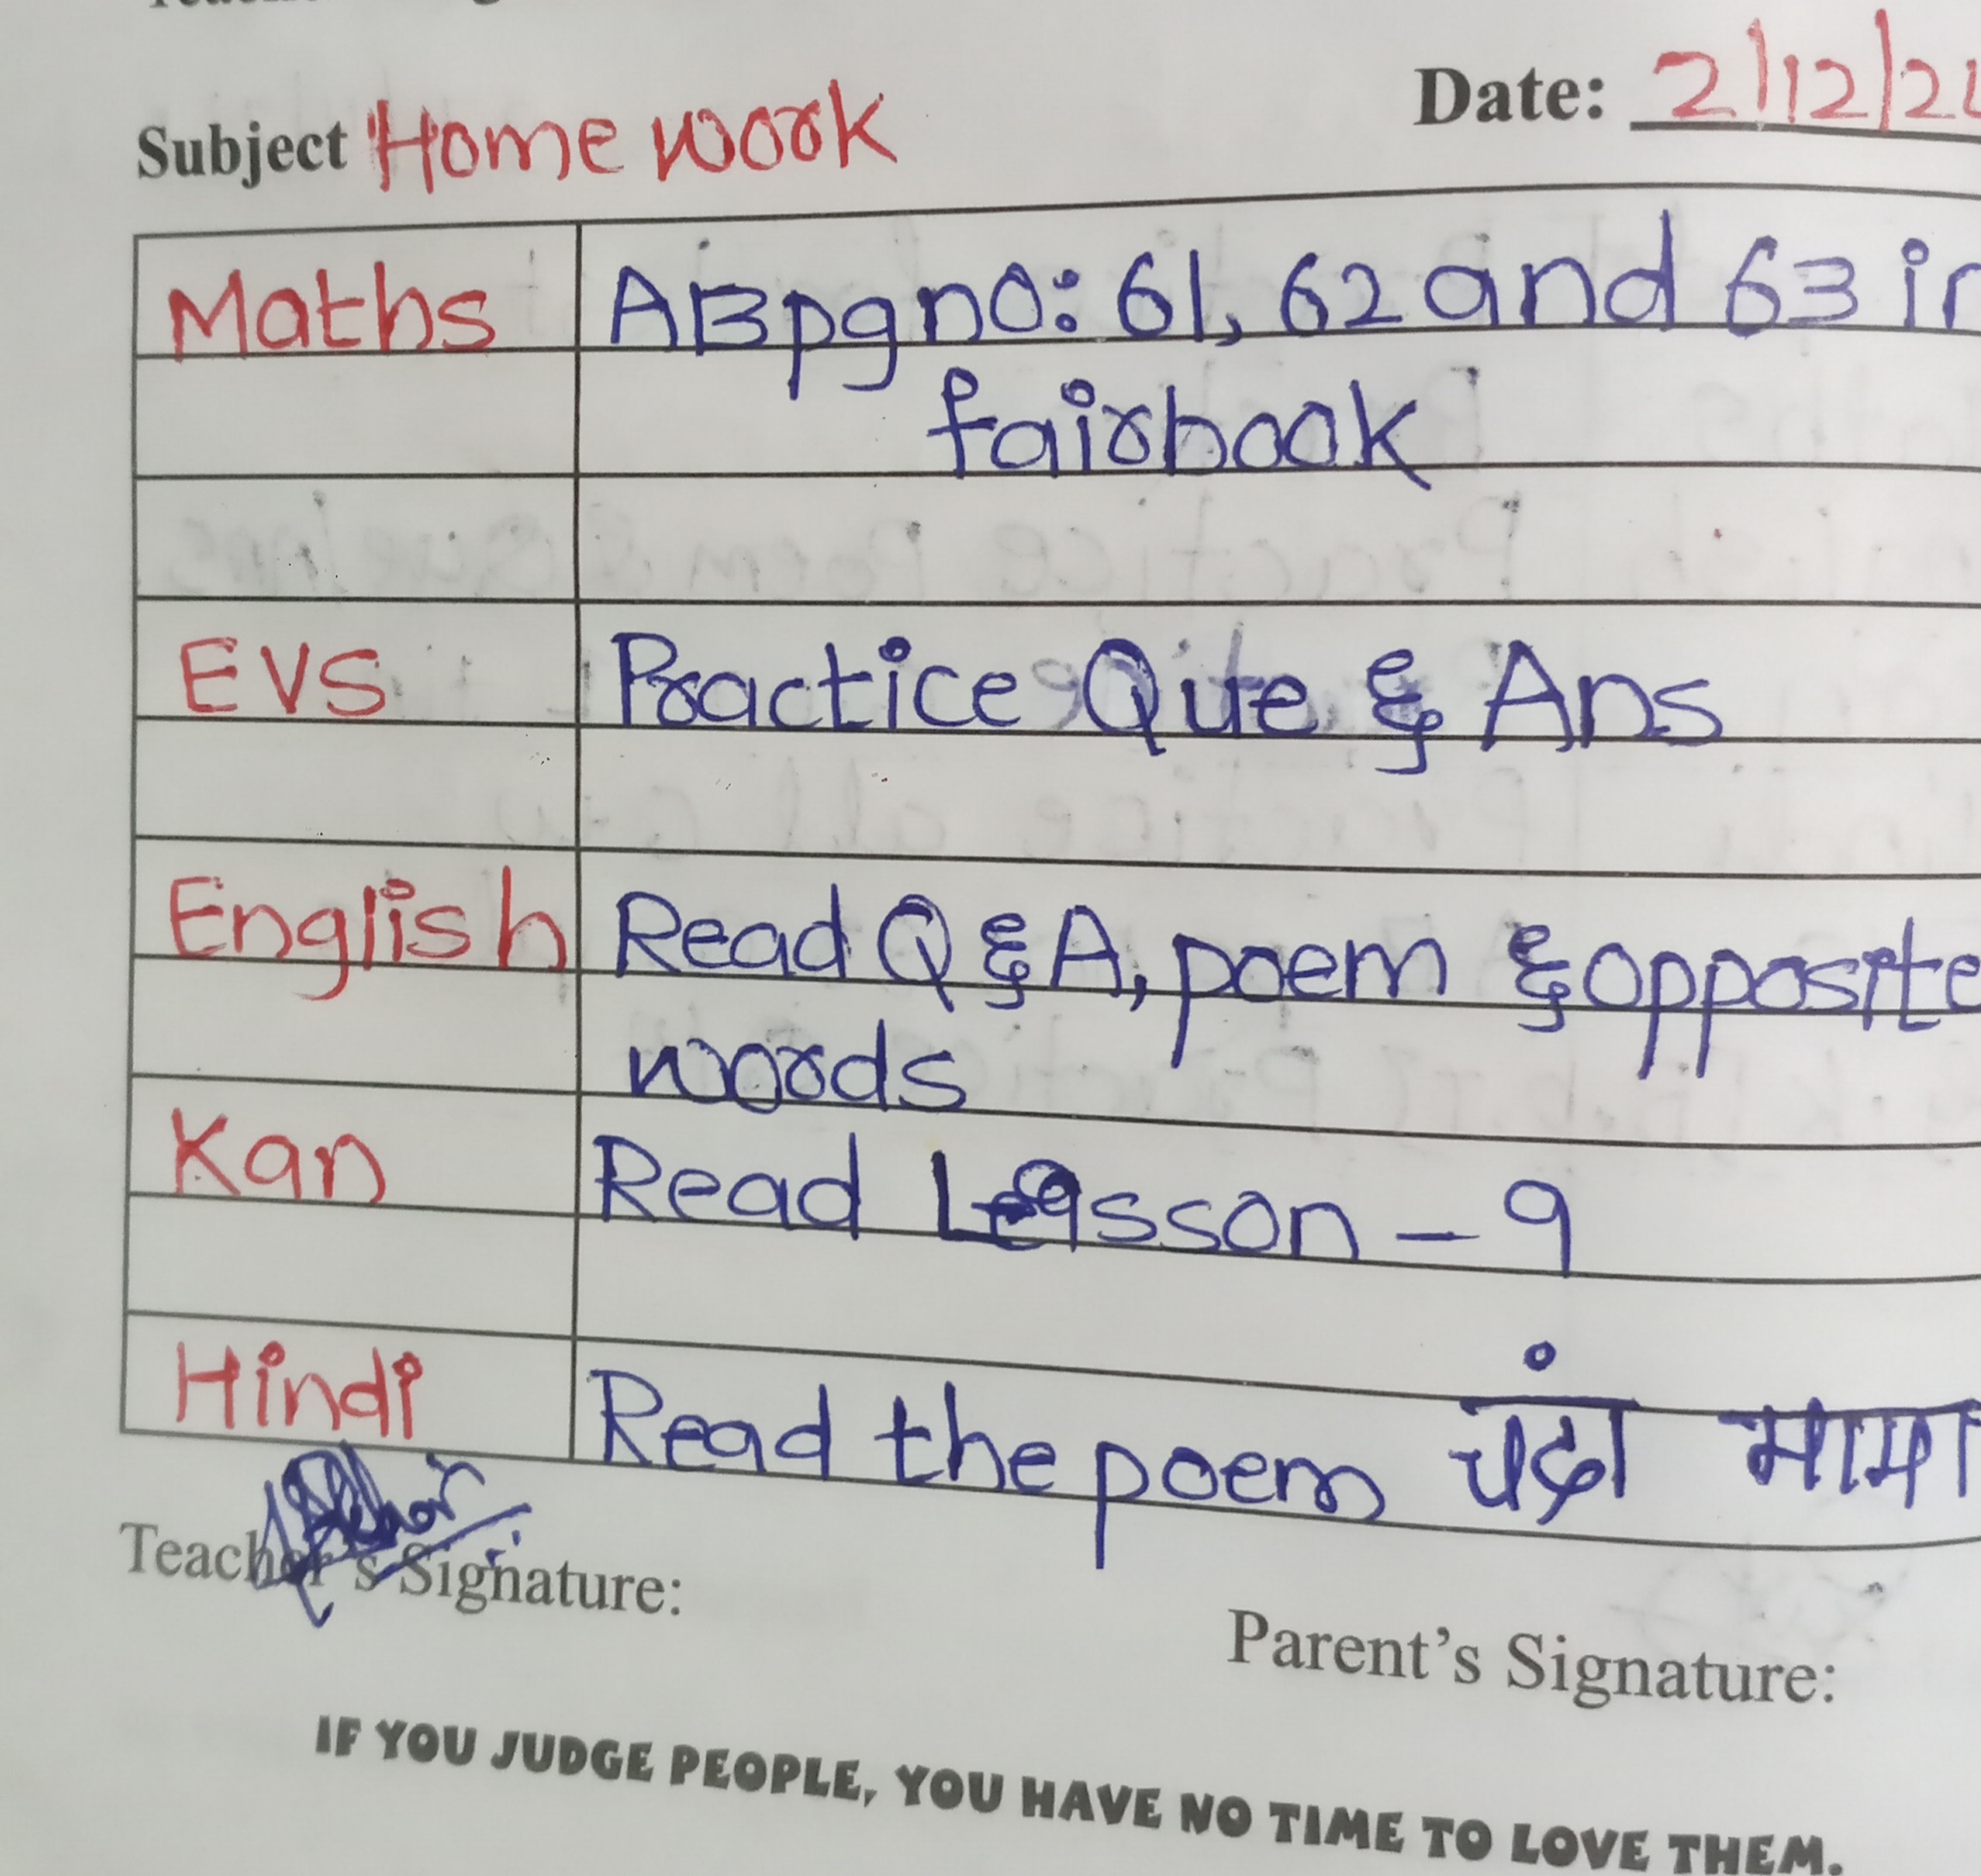 Subject Home work
Date: 2/12/2
Maths ABpgno: 61, 62 and 63 in
fairbook
EVS Practice Qute & Ans
English Read Q & A, poem & opposite
words
Kan Read Lesson - 9
Hindi Read the poem चंदा मामा
Teacher's Signature:
Parent's Signature:
IF YOU JUDGE PEOPLE, YOU HAVE NO TIME TO LOVE THEM.